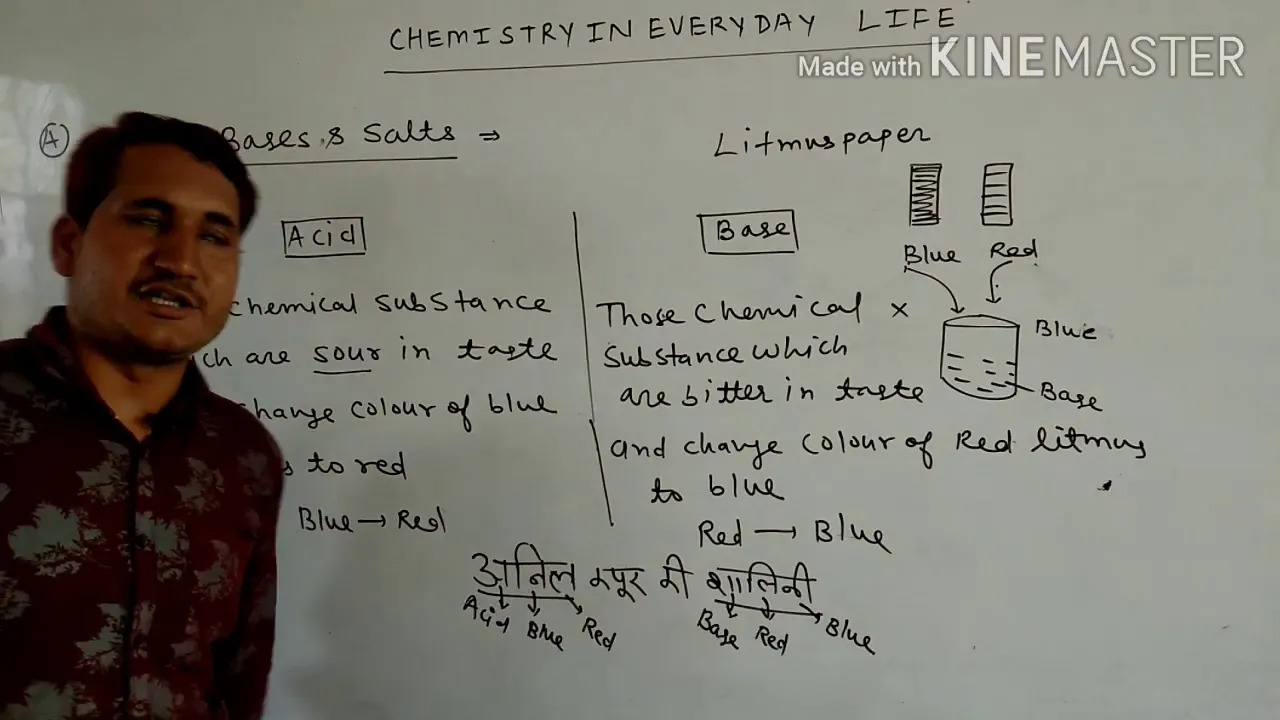 CHEMISTRY IN EVERYDAY LIFE
Made with KINEMASTER
(A) Bases & Salts ⇒
Litmus paper
Blue Red
Acid
chemical substance
ch are sour in taste
change colour of blue
s to red
Blue → Red
Base
Those chemical ×
substance which
are bitter in taste
and change colour of Red litmus
to blue
Red → Blue
Blue
Base
अनिल कपूर की शालिनी
Acid Blue Red
Base Red Blue